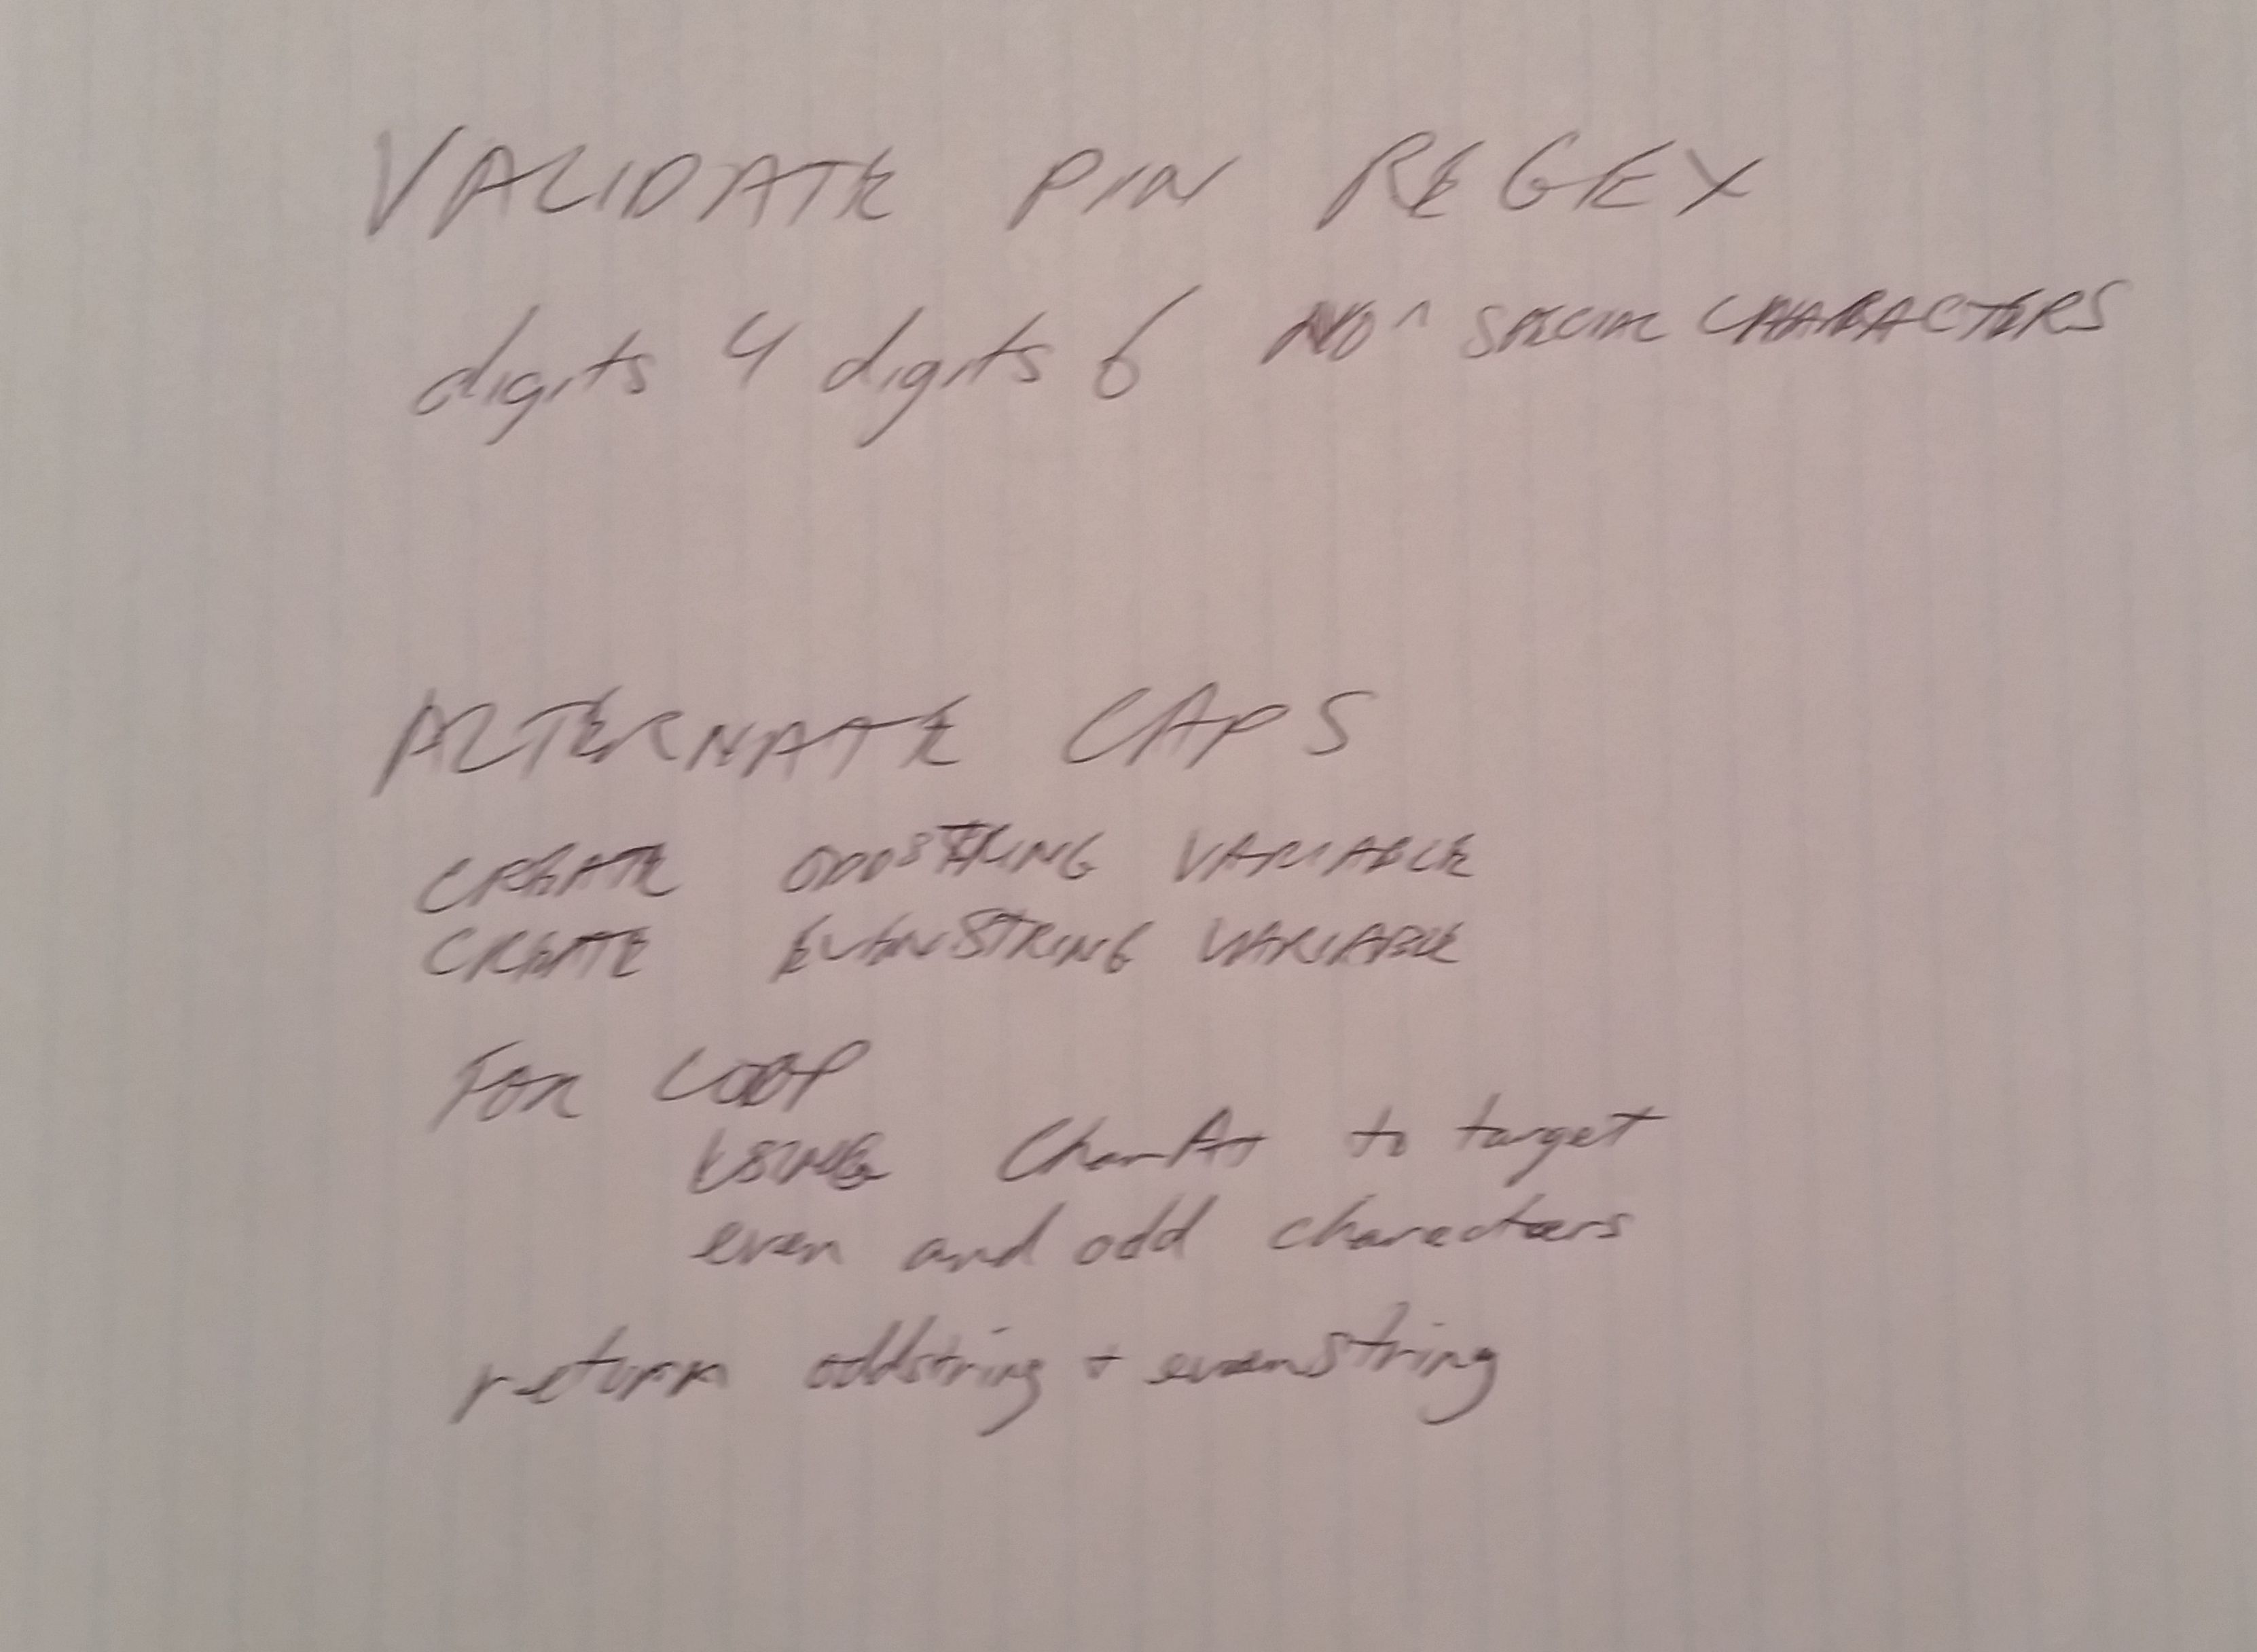 VALIDATE PIN REGEX
digits 4 digits 6 NO ^ SPECIAL CHARACTERS
ALTERNATE CAPS
CREATE ODDSTRING VARIABLE
CREATE EVENSTRING VARIABLE
FOR LOOP
USING CharAt to target
even and odd characters
return oddstring + evenstring